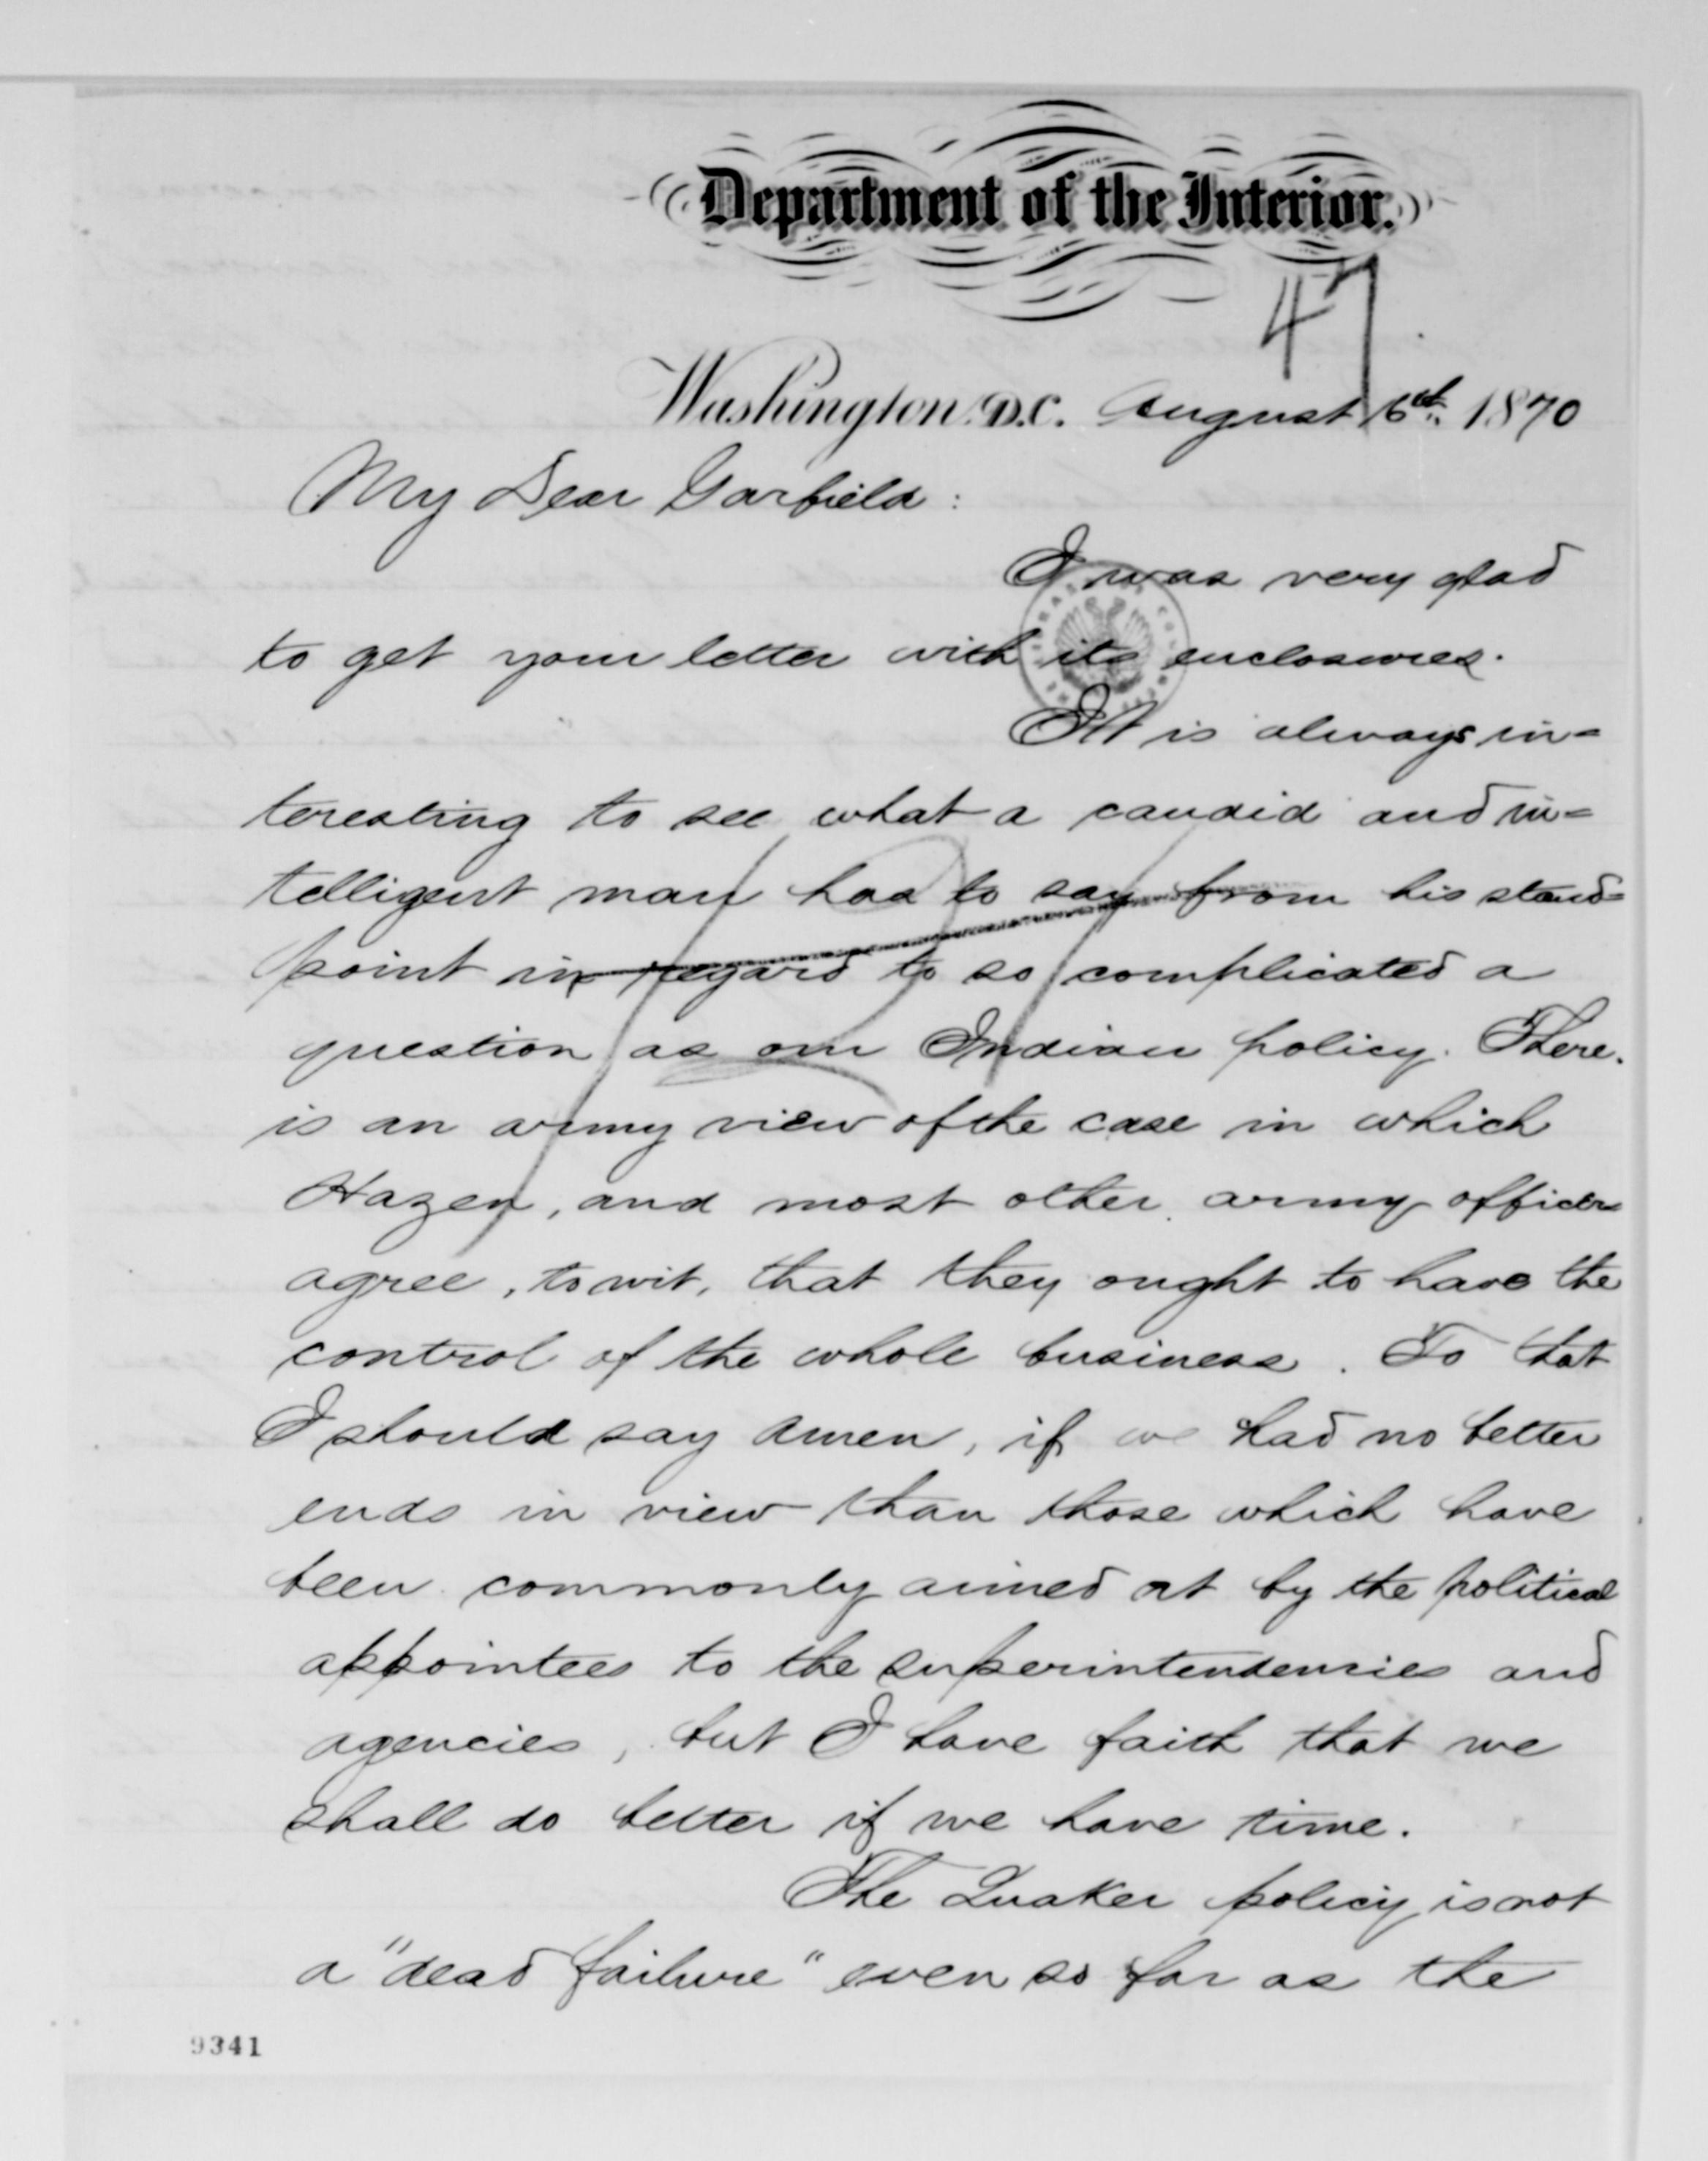 Department of the Interior.
47
Washington, D.C. August 6th, 1870
My Dear Garfield:
I was very glad
to get your letter with its enclosures.
It is always in=
teresting to see what a candid and in=
telligent man has to say from his stand=
point in regard to so complicated a
question as our Indian policy. There
is an army view of the case in which
Hazen, and most other army officers
agree, to wit, that they ought to have the
control of the whole business. To that
I should say Amen, if we had no better
ends in view than those which have
been commonly aimed at by the political
appointees to the superintendencies and
agencies, but I have faith that we
shall do better if we have time.
The Quaker policy is not
a "dead failure" even so far as the
9341